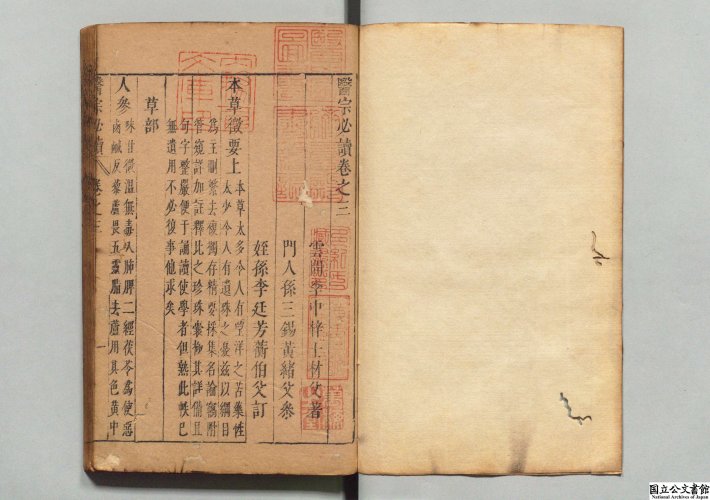 醫宗必讀卷之三
雲間李中梓士材父著
門人孫三錫黃緒父參
姪孫李廷芳蘅伯父訂
本草徵要上
本草太多令人有望洋之苦藥性
太少令人有遺珠之憂茲以綱目
為主刪繁去複獨存精要採集名論竊附
管窺詳加註釋比之珍珠囊極其詳備且
句字整嚴便于誦讀使學者但熟此帙已
無遺用不必復事他求矣
草部
人參
味甘微溫無毒入肺脾二經茯苓為使惡
鹵鹹反藜蘆畏五靈脂去蘆用其色黃中
醫宗必讀
卷之三
一
国立公文書館
National Archives of Japan